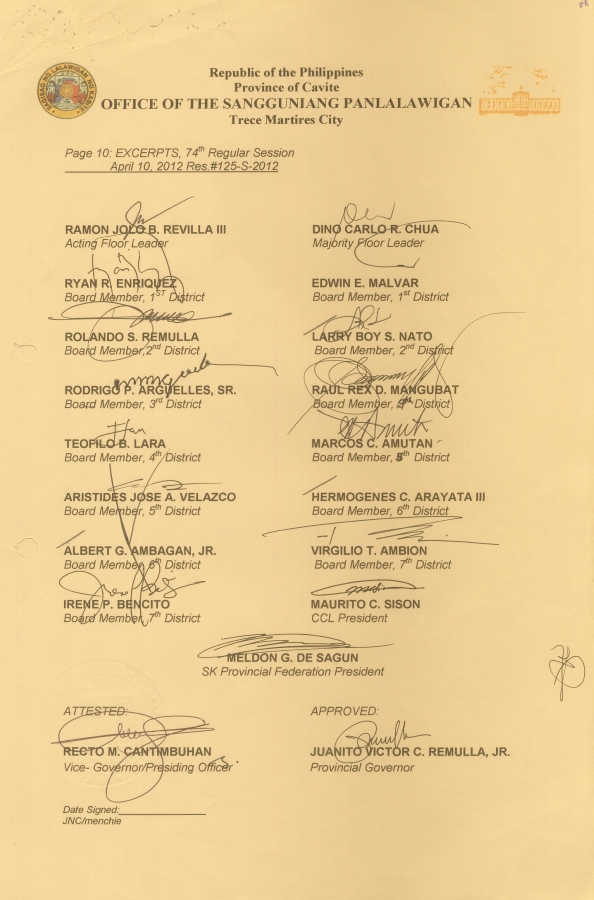 Republic of the Philippines
Province of Cavite
OFFICE OF THE SANGGUNIANG PANLALAWIGAN
Trece Martires City
Page 10: EXCERPTS, 74th Regular Session
April 10, 2012 Res.#125-S-2012
RAMON JOLO B. REVILLA III
Acting Floor Leader
DINO CARLO R. CHUA
Majority Floor Leader
RYAN R. ENRIQUEZ
Board Member, 1ST District
EDWIN E. MALVAR
Board Member, 1st District
ROLANDO S. REMULLA
Board Member,2nd District
LARRY BOY S. NATO
Board Member, 2nd District
RODRIGO P. ARGUELLES, SR.
Board Member, 3rd District
RAUL REX D. MANGUBAT
Board Member, District
TEOFILO B. LARA
Board Member, 4th District
MARCOS C. AMUTAN
Board Member, 5th District
ARISTIDES JOSE A. VELAZCO
Board Member, 5th District
HERMOGENES C. ARAYATA III
Board Member, 6th District
ALBERT G. AMBAGAN, JR.
Board Member, 6th District
VIRGILIO T. AMBION
Board Member, 7th District
IRENE P. BENCITO
Board Member, 7th District
MAURITO C. SISON
CCL President
MELDON G. DE SAGUN
SK Provincial Federation President
ATTESTED:
APPROVED:
RECTO M. CANTIMBUHAN
Vice- Governor/Presiding Officer
JUANITO VICTOR C. REMULLA, JR.
Provincial Governor
Date Signed:
JNC/menchie